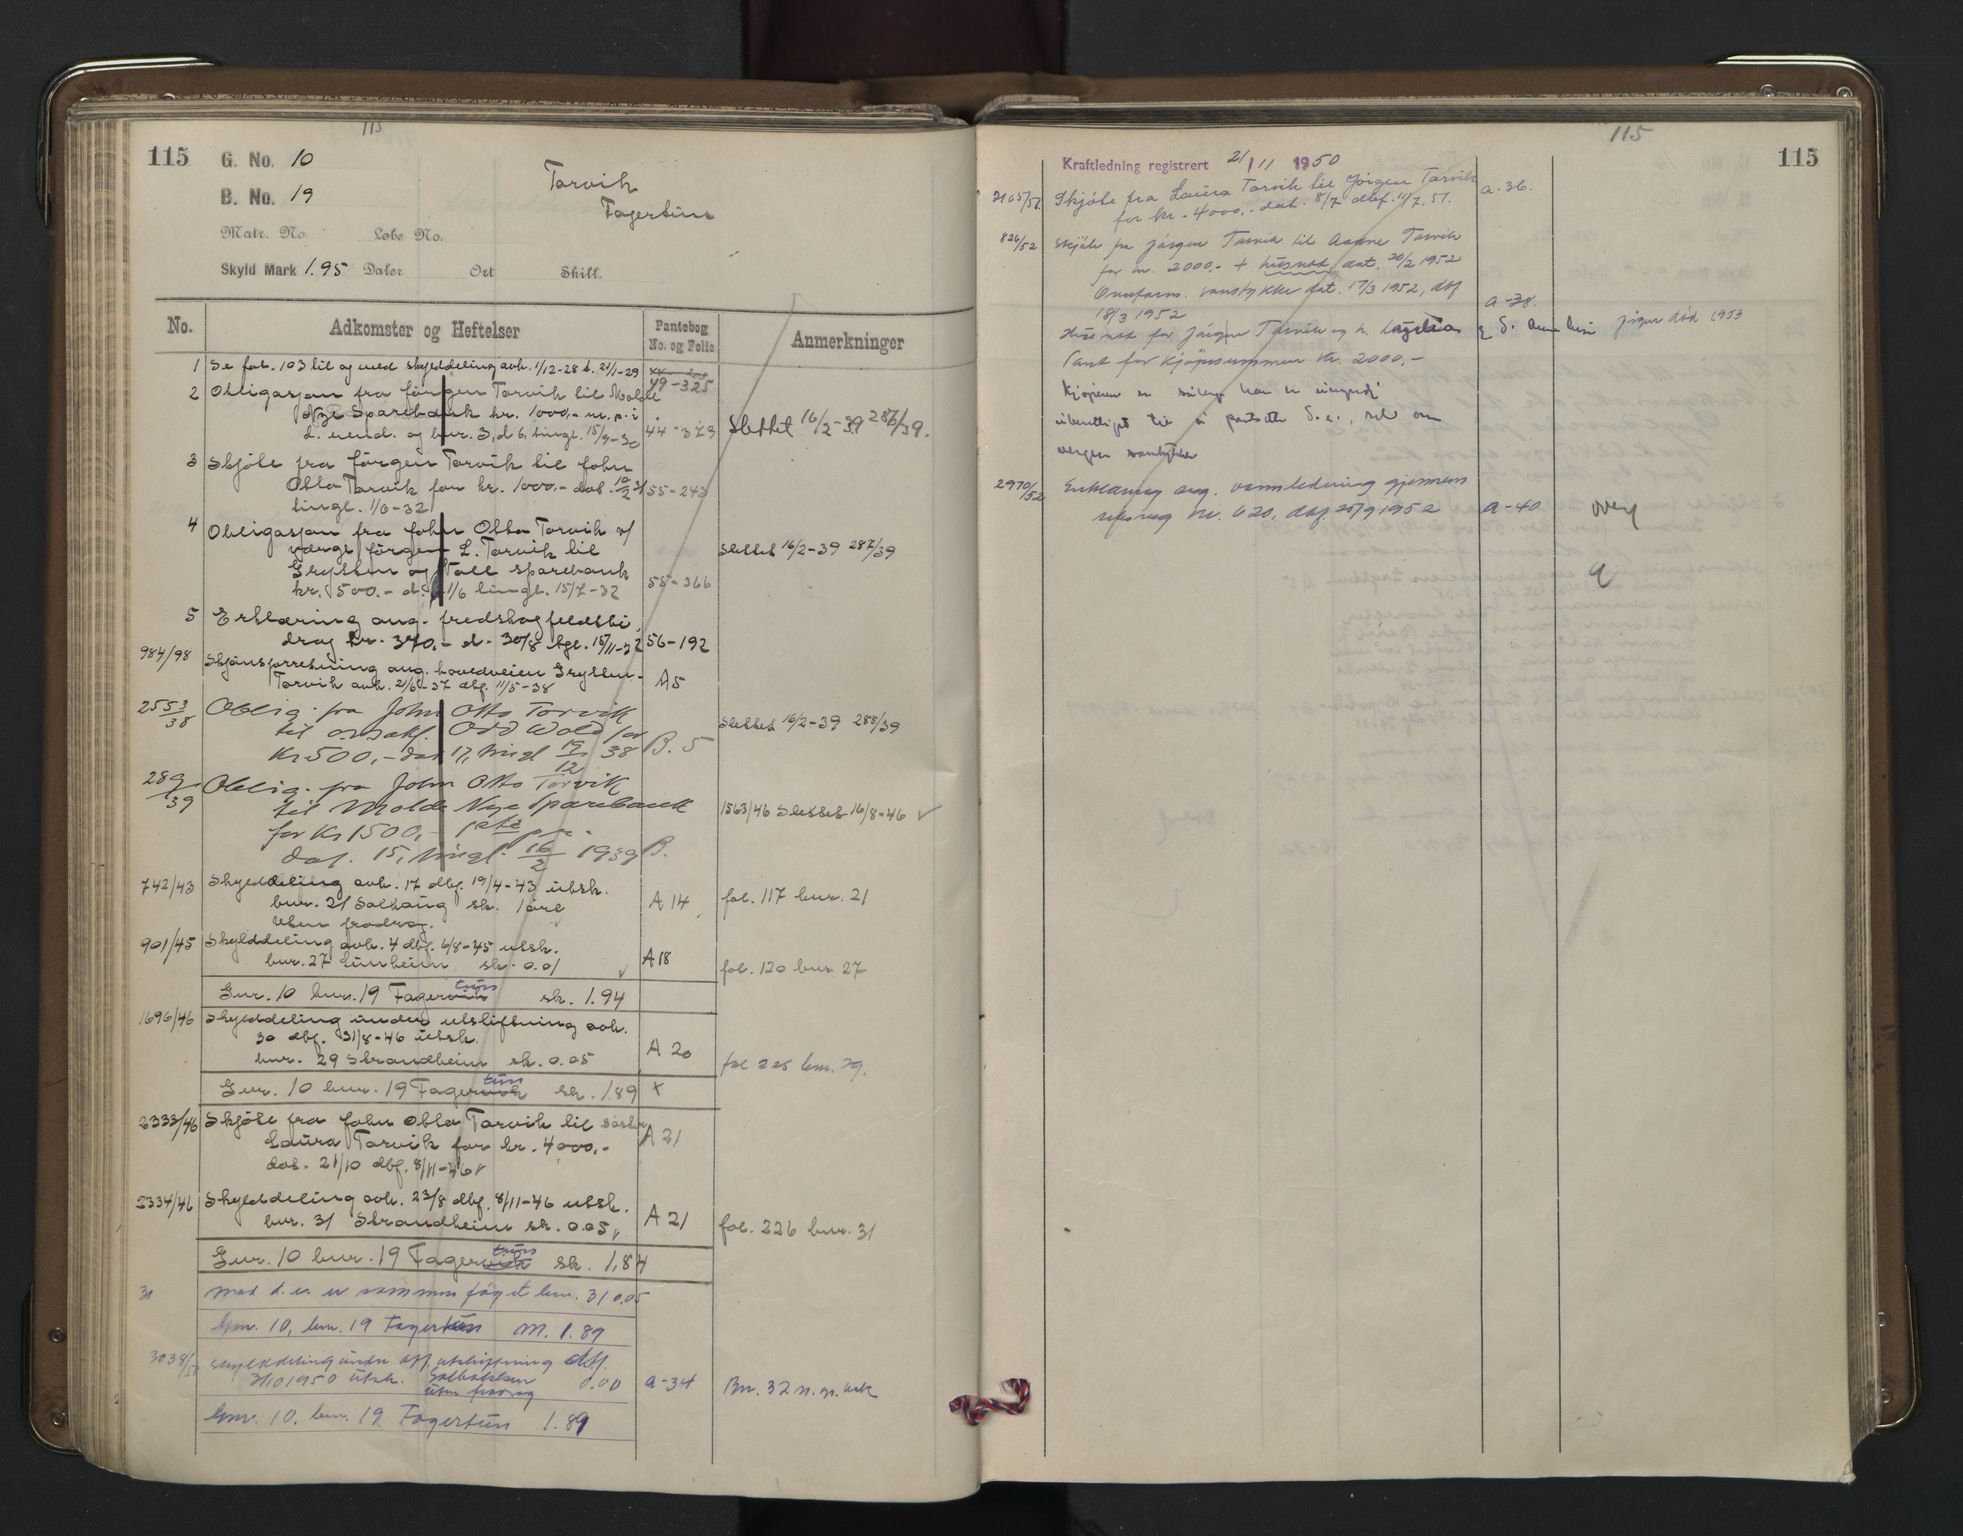 115
115
G. No. 10
B. No. 19
Tarvik
Fagertun
Matr. No. Løbe No.
Skyld Mark 1.95 Daler Ort Skill.
No. Adkomster og Heftelser Pantebog No. og Folio Anmerkninger
1 Se fol. 103 til og med skylddeling avh. 1/12-28 t. 21/1-29 49-325
2 Obligasjon fra Jörgen Tarvik til Molde
Nye Sparebank kr. 1000,- m. p. i
d. eiend. og bnr. 3, d 6, tingl. 15/9-30 44-379 Slettet 16/2-39 287/39.
3 Skjöte fra Jörgen Tarvik til John
Otto Tarvik for kr. 1000,- dat. 10/2 31 55-243
tingl. 1/6-32
4 Obligasjon fra John Otto Tarvik v/
verge Jörgen L. Tarvik til
Grytten og Voll sparebank Slettet 16/2-39 287/39
kr. 500.- d. 1/6 tingl. 15/7-32 55-366
5 Erklæring ang. fredskogfeldsbi
drag kr. 370,- d. 30/8 tgl. 15/11-32 56-192
984/98 Skjönsforretning ang. hovedveien Grytten-
Tarvik avh. 2/6-37 dbf. 11/5-38 A5
2553/38 Oblig. fra John Otto Torvik
til o.r.sakf. Odd Wold for Slettet 16/2-39 288/39
Kr 500,- dat 17, tingl 19/12 38 B. 5
289/39 Oblig. fra John Otto Torvik
til Molde Nye Sparebank
for Kr 1500,- 1ste pr. 1563/46 Slettet 16/8-46 ✓
dat. 15, tingl. 16/2 1939 B.
742/43 Skylddeling avh. 17 dbf. 19/4-43 utsk.
bnr. 21 Solhaug sk. 1 öre A 14 fol. 117 bnr. 21
uten fradrag.
901/45 Skylddeling avh. 4 dbf. 6/8-45 utsk.
bnr. 27 Tunheim sk. 0.01 ✓ A 18 fol. 120 bnr. 27
Gnr. 10 bnr. 19 Fagervik tun sk. 1.94
1696/46 Skylddeling under utskiftning avh.
30 dbf. 31/8-46 utsk.
bnr. 29 Strandheim sk. 0.05 A 20 fol 225 bnr. 29.
Gnr. 10 bnr. 19 Fagervik tun sk. 1.89 x
2333/46 Skjöte fra John Otto Tarvik til söster
Laura Tarvik for kr. 4000,- A 21
dat. 21/10 dbf. 8/11-46 ✓
2334/46 Skylddeling avh. 23/8 dbf. 8/11-46 utsk.
bnr. 31 Strandheim sk. 0.05 ✓ A 21 fol. 226 bnr. 31
Gnr. 10 bnr. 19 Fagervik tun sk. 1,84
31 Med d. e. er sammenföyet bnr. 31 0,05
Gnr. 10, bnr. 19 Fagertun M. 1.89
3038/50 Skylddeling under off. utskiftning dbf.
3/10 1950 utsk. Solbakken
uten fradrag 0.00 a-34 Bnr. 32
Gnr. 10. bnr. 19 Fagertun 1.89
115
115
Kraftledning registrert 21/11 1950
2105/51 Skjöte fra Laura Tarvik til Jörgen Tarvik a-36.
for kr. 4000,- dat. 8/7 dbf. 11/7. 51.
826/52 Skjöte fra Jörgen Tarvik til Aasne Tarvik
for kr. 2000,- + husnot, dat. 20/2 1952
samtykke dat. 17/3 1952, dbf
18/3 1952 a-38.
Husnot for Jörgen Tarvik og h. Jörgen död 1953
Pant for kjöpesummen kr. 2000,-
Kjöperen er han er
til å pantsette d. e., selv om
vergen samtykker
2970/52 Erklæring ang. vannledning gjennem
nr. 620, dbf. 25/9 1952 a-40